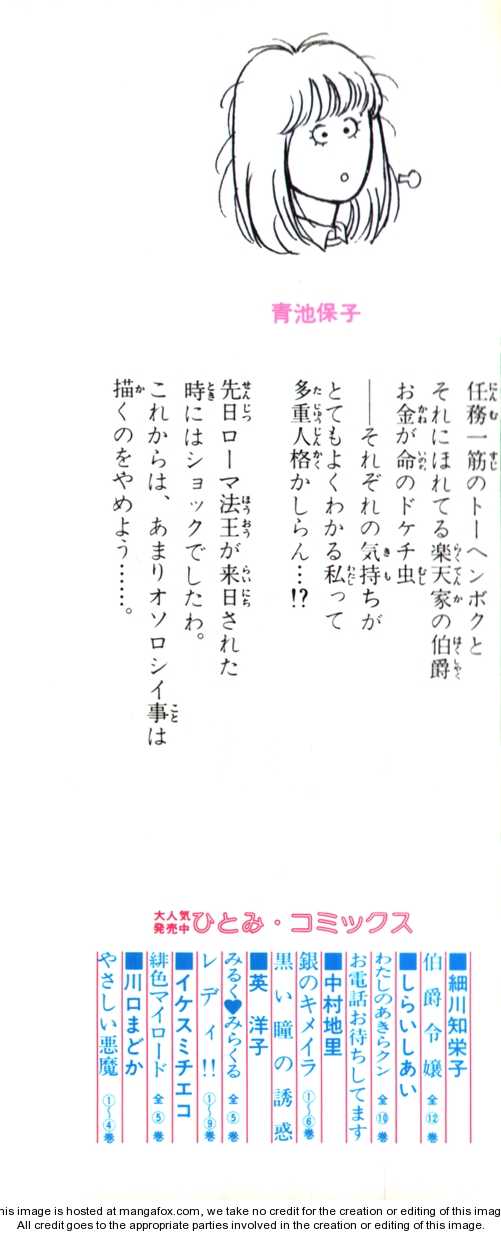 青池保子
任務一筋のトーヘンボクと
それにほれてる楽天家の伯爵
お金が命のドケチ虫
──それぞれの気持ちが
とてもよくわかる私って
多重人格かしらん…!?
先日ローマ法王が来日された
時にはショックでしたわ。
これからは、あまりオソロシイ事は
描くのをやめよう……。
大人気発売中 ひとみ・コミックス
■細川知栄子
伯爵令嬢 全⑫巻
■しらいしあい
わたしのあきらクン 全⑩巻
お電話お待ちしてます
■中村地里
銀のキメイラ ①〜⑥巻
黒い瞳の誘惑
■英 洋子
みるく♥みらくる 全⑤巻
レディ!! ①〜⑨巻
■イケスミチエコ
緋色マイロード 全⑤巻
■川口まどか
やさしい悪魔 ①〜④巻
his image is hosted at mangafox.com, we take no credit for the creation or editing of this imag
All credit goes to the appropriate parties involved in the creation or editing of this image.